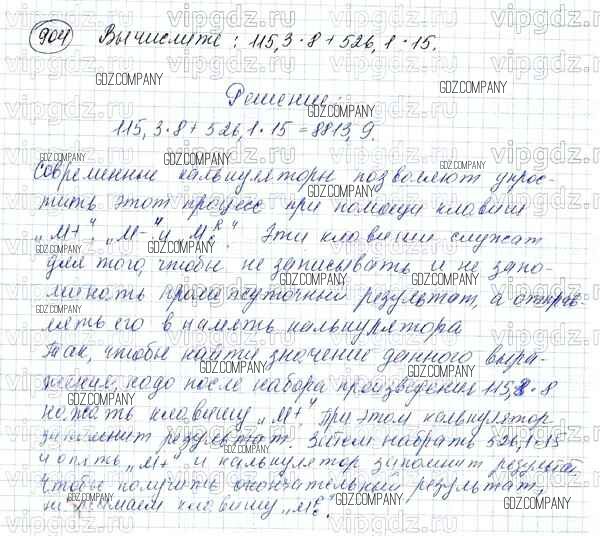 904 Вычислите: 115,3·8+526,1·15.
Решение:
115,3·8+526,1·15=8813,9.
Современные калькуляторы позволяют упрос-
тить этот процесс при помощи клавиш
„М+", „М-" и „МR". Эти клавиши служат
для того, чтобы не записывать и не запо-
минать промежуточный результат, а отправ-
лять его в память калькулятора
Так, чтобы найти значение данного выра-
жения, надо после набора произведения 115,3·8
нажать клавишу „М+". При этом калькулятор
запомнит результат. Затем набрать 526,1·15
и опять „М+" и калькулятор запомнит результат
Чтобы получить окончательный результат,
нажимаем клавишу „МR".
GDZ.COMPANY
vipgdz.com